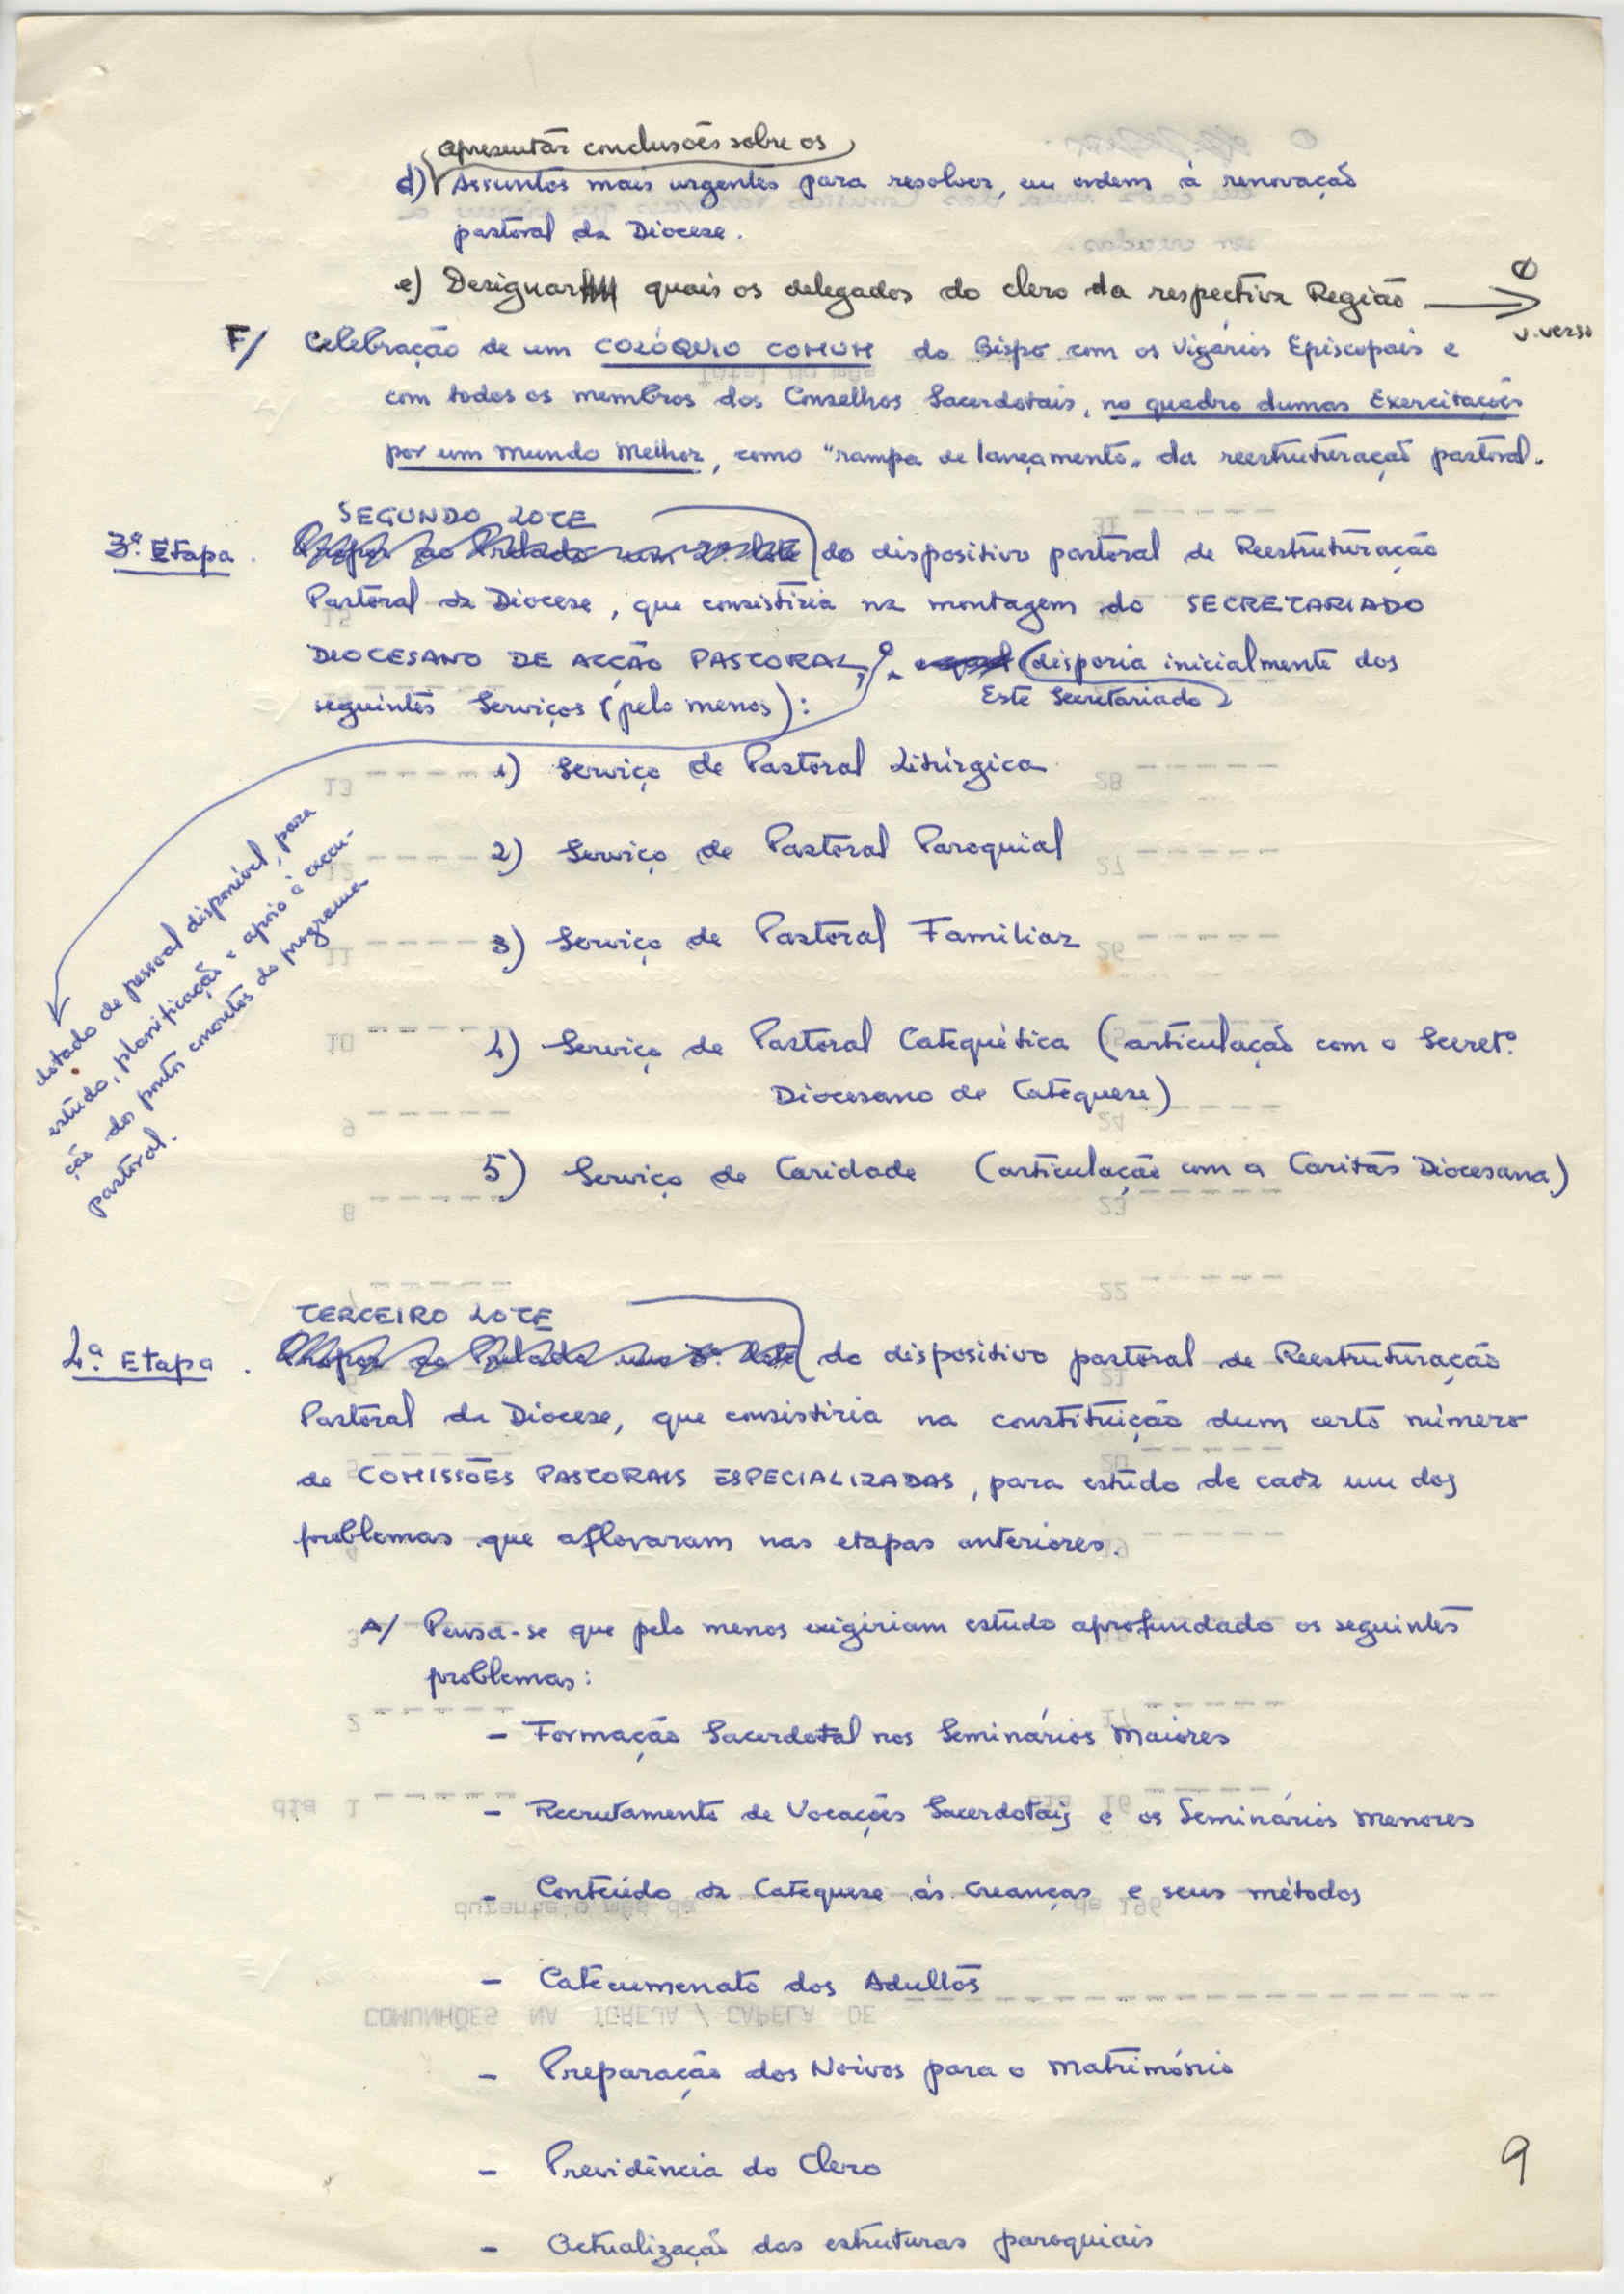 apresentar conclusões sobre os
d) Assuntos mais urgentes para resolver, em ordem à renovação
pastoral da Diocese.
e) Designar quais os delegados do clero da respectiva Região
v. verso
F/ Celebração de um COLÓQUIO COMUM do Bispo com os Vigários Episcopais e
com todos os membros dos Conselhos Sacerdotais, no quadro dumas Exercitações
por um Mundo Melhor, como "rampa de lançamento" da reestruturação pastoral.
SEGUNDO LOTE
3ª. Etapa. Propor ao Prelado um 2º. lote do dispositivo pastoral de Reestruturação
Pastoral da Diocese, que consistiria na montagem do SECRETARIADO
DIOCESANO DE ACÇÃO PASTORAL, o qual disporia inicialmente dos
Este Secretariado
seguintes Serviços (pelo menos):
1) Serviço de Pastoral Litúrgica
2) Serviço de Pastoral Paroquial
3) Serviço de Pastoral Familiar
4) Serviço de Pastoral Catequética (articulação com o Secretº.
Diocesano de Catequese)
5) Serviço de Caridade (articulação com a Caritas Diocesana)
dotado de pessoal disponível, para
estudo, planificação e apoio à execu-
ção dos pontos concretos do programa
pastoral.
TERCEIRO LOTE
4ª. Etapa. Propor ao Prelado um 3º. lote do dispositivo pastoral de Reestruturação
Pastoral da Diocese, que consistiria na constituição dum certo número
de COMISSÕES PASTORAIS ESPECIALIZADAS, para estudo de cada um dos
problemas que afloraram nas etapas anteriores.
A/ Pensa-se que pelo menos exigiriam estudo aprofundado os seguintes
problemas:
- Formação Sacerdotal nos Seminários Maiores
- Recrutamento de Vocações Sacerdotais e os Seminários Menores
- Conteúdo da Catequese às Crianças e seus métodos
- Catecumenato dos Adultos
- Preparação dos Noivos para o Matrimónio
- Previdência do Clero
- Actualização das estruturas paroquiais
9